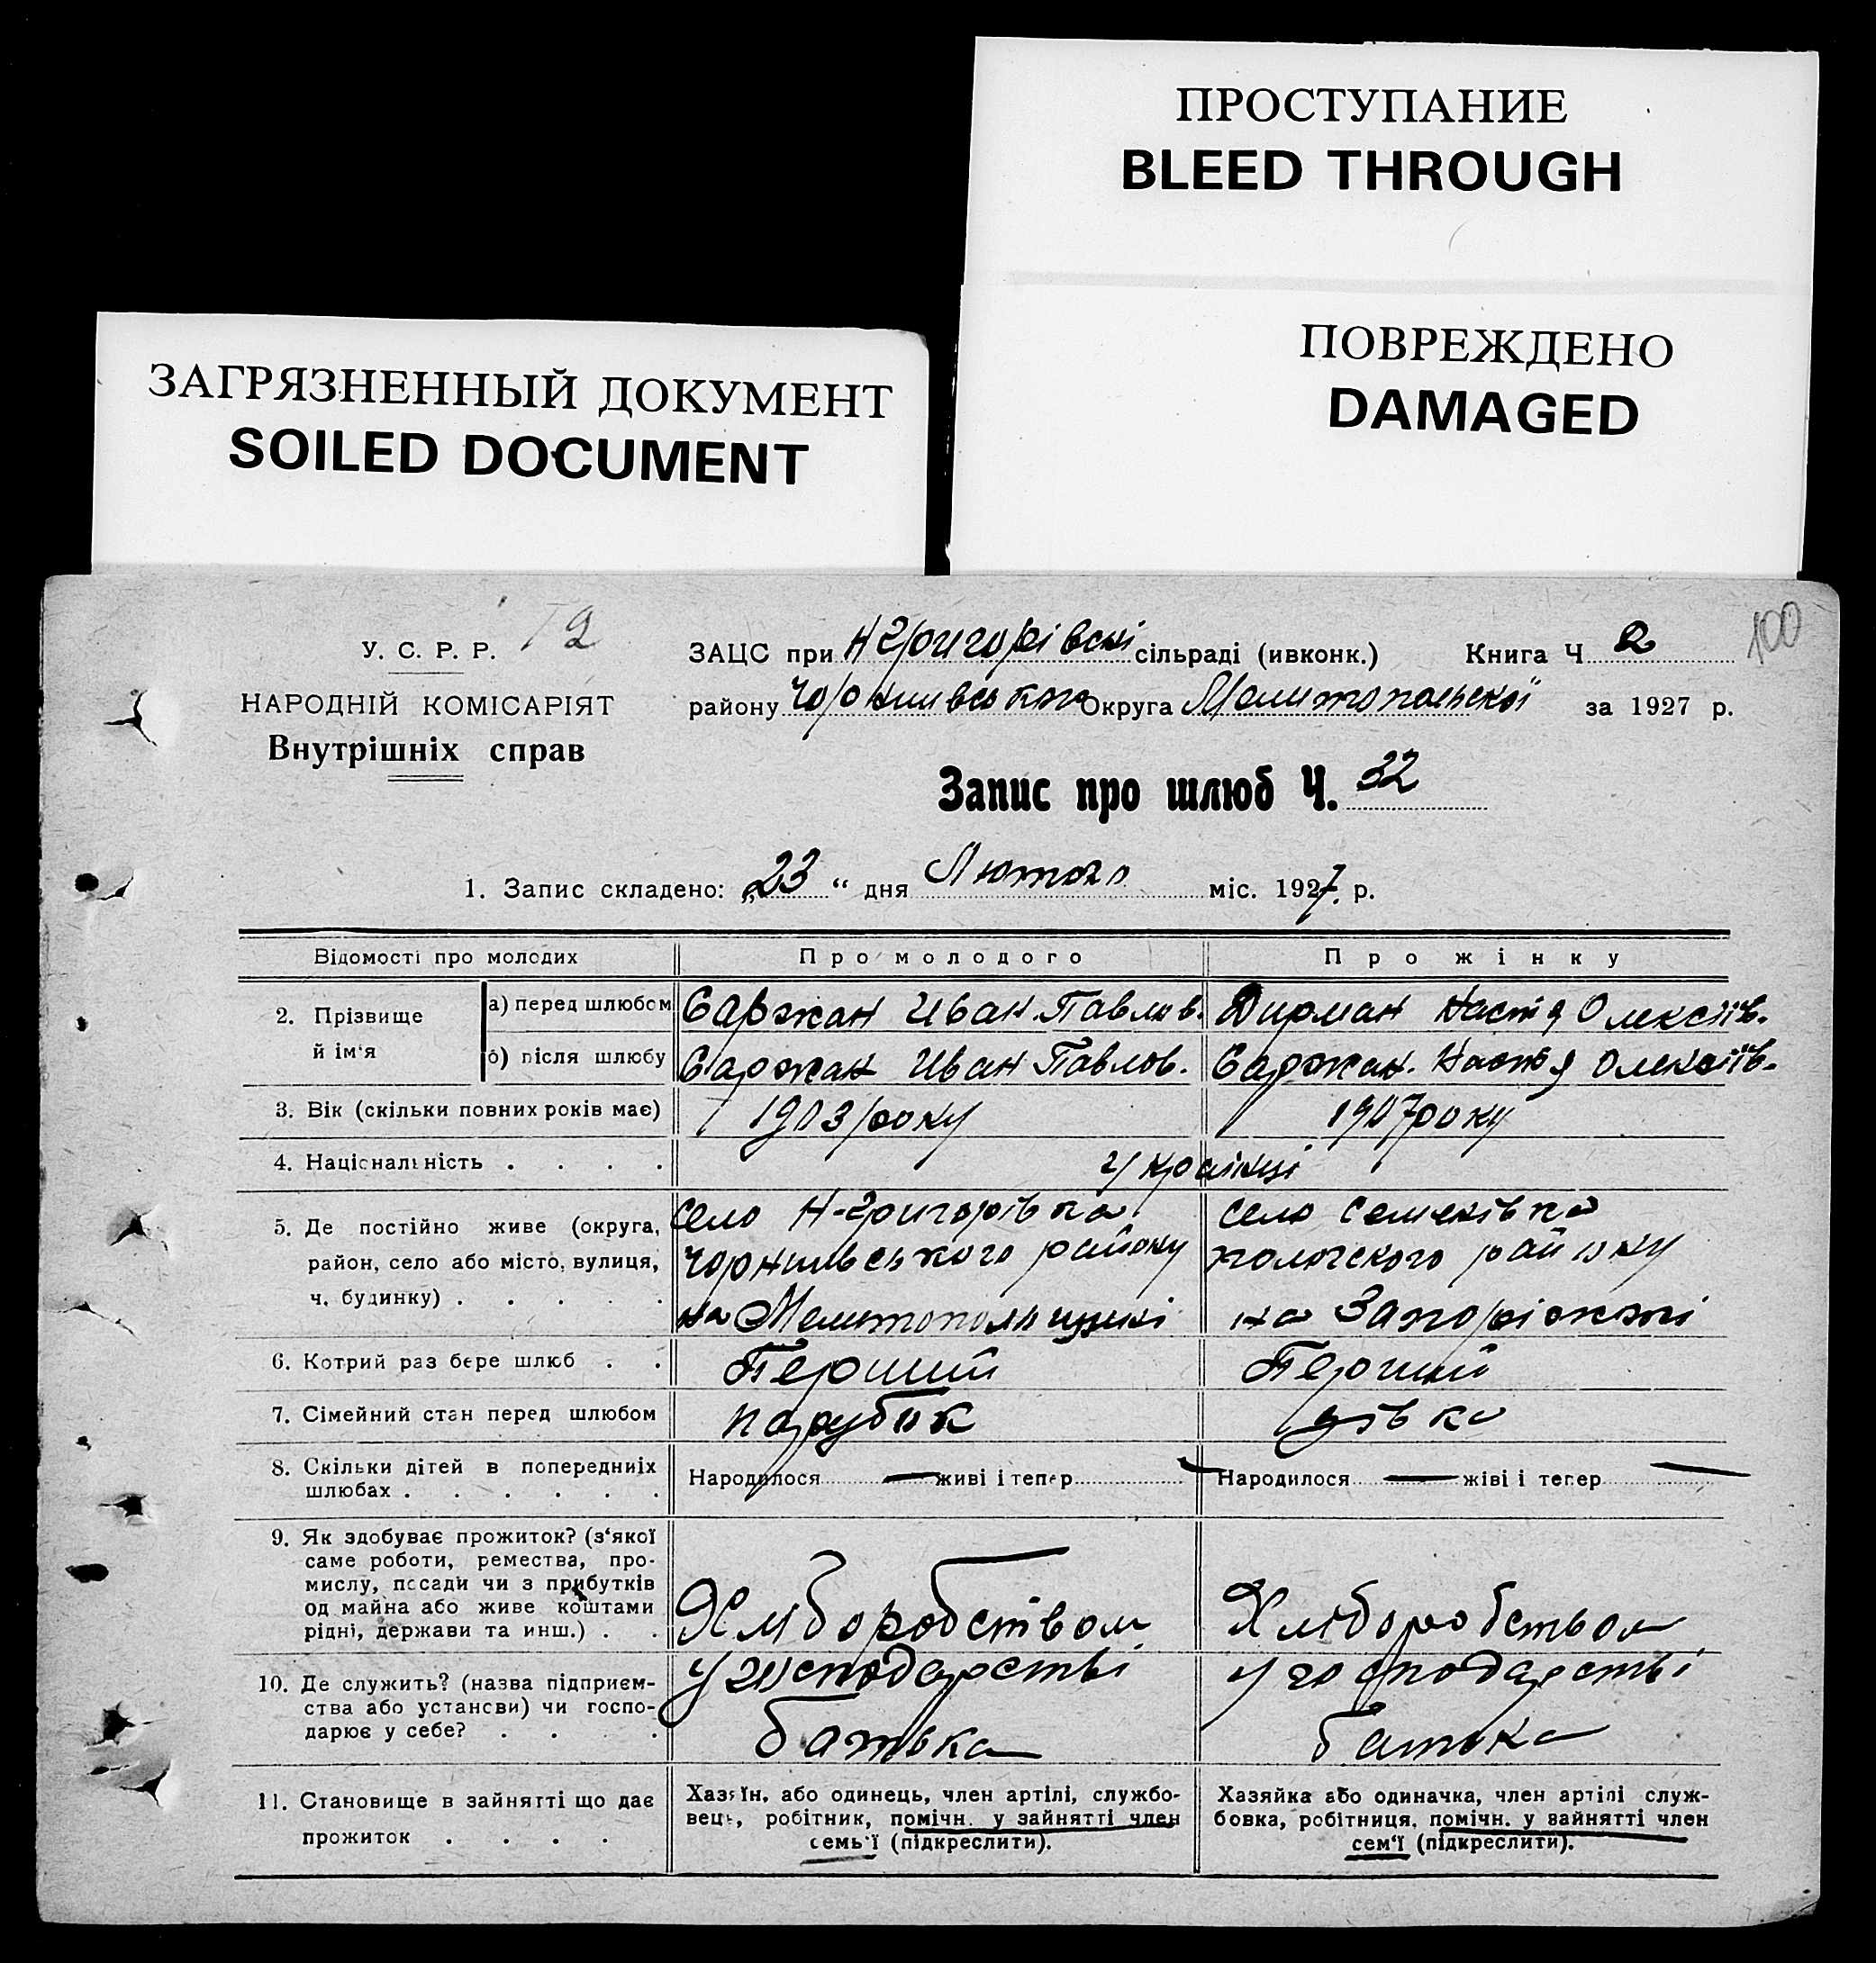 ПРОСТУПАНИЕ
BLEED THROUGH
ПОВРЕЖДЕНО
DAMAGED
ЗАГРЯЗНЕННЫЙ ДОКУМЕНТ
SOILED DOCUMENT
100
У. С. Р. Р.
НАРОДНІЙ КОМІСАРІЯТ
Внутрішніх справ
ЗАЦС при Н Григорівскі сільраді (ивконк.) Книга Ч 2
району Чорнигівського Округа Мелитопольскої за 1927 р.
Запис про шлюб Ч. 32
1. Запис складено: „23" дня Лютого міс. 1927. р.
Відомості про молодих Про молодого Про жінку
2. Прізвище й ім'я
а) перед шлюбом Саржан Иван Павлов. Дирман Настя Олексіїв.
б) після шлюбу Саржан Иван Павлов. Саржан. Настя Олексіїв.
3. Вік (скільки повних років має) 1903 року 1907 року
4. Національність . . . . українці
5. Де постійно живе (округа, село Н-Григорівка село Семенівка
район, село або місто, вулиця, району району
ч. будинку) . . . . . на Мелитопольщині на Запоріжжі
6. Котрий раз бере шлюб . . Перший Перший
7. Сімейний стан перед шлюбом парубок дівка
8. Скільки дітей в попередниіх Народилося — живі і тепер — Народилося — жіві і тепер —
шлюбах . . . . . .
9. Як здобуває прожиток? (з'якої
саме роботи, ремества, про-
мислу, посади чи з прибутків
од майна або живе коштами Хліборобством Хліборобством
рідні, держави та инш.) . .
10. Де служить? (назва підприєм- у господарстві у господарстві
ства або установи) чи госпо-
дарює у себе? . . . батька батька
11. Становище в зайнятті що дає
прожиток . . . .
Хазяїн, або одинець, член артілі, службо-
вець, робітник, помічн. у зайнятті член
семь'ї (підкреслити).
Хазяйка або одиначка, член артілі служ-
бовка, робітниця, помічн. у зайнятті член
сем'ї (підкреслити).